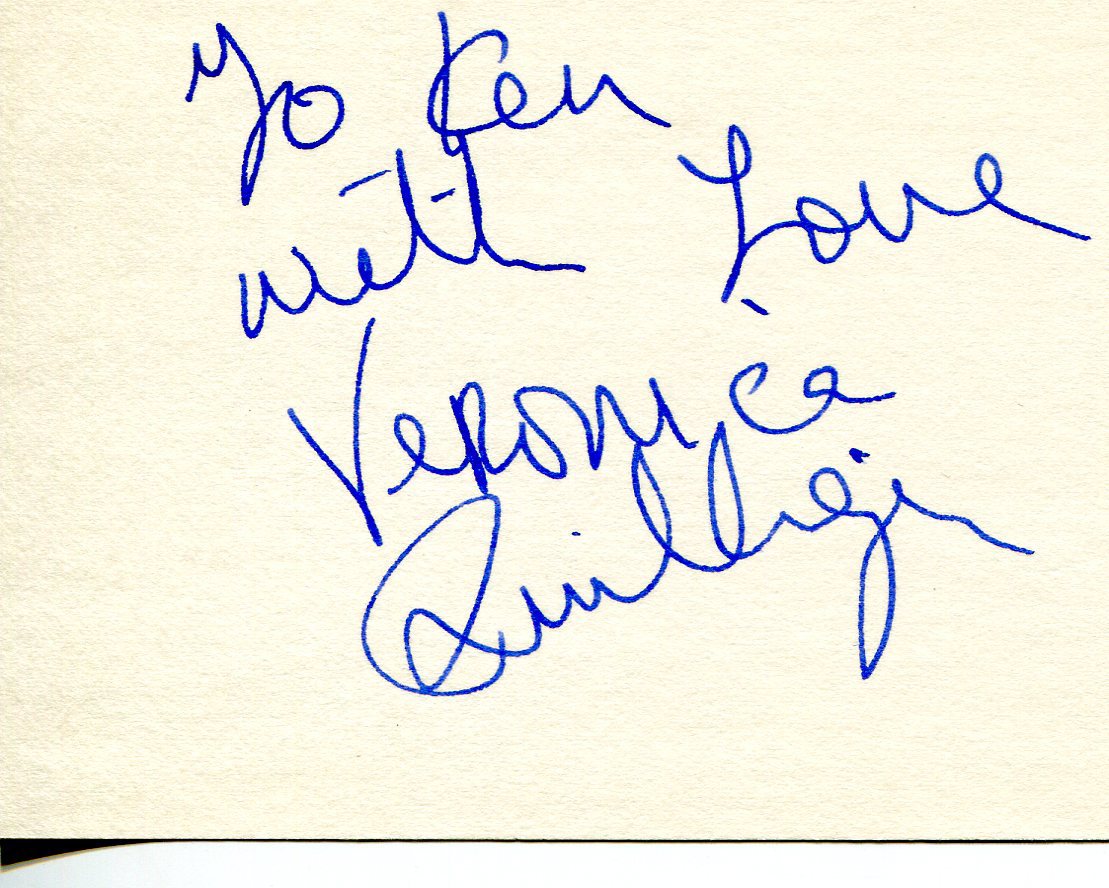 To Ken
with Love
Veronica
Quilligan